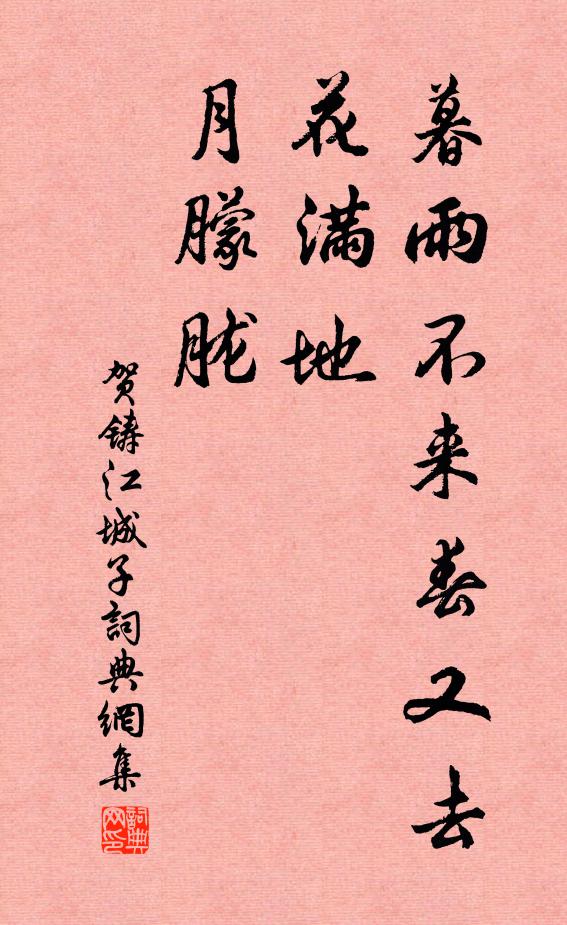 暮雨不来春又去
花满地
月朦胧
贺铸江城子詞典網集
詞典网印